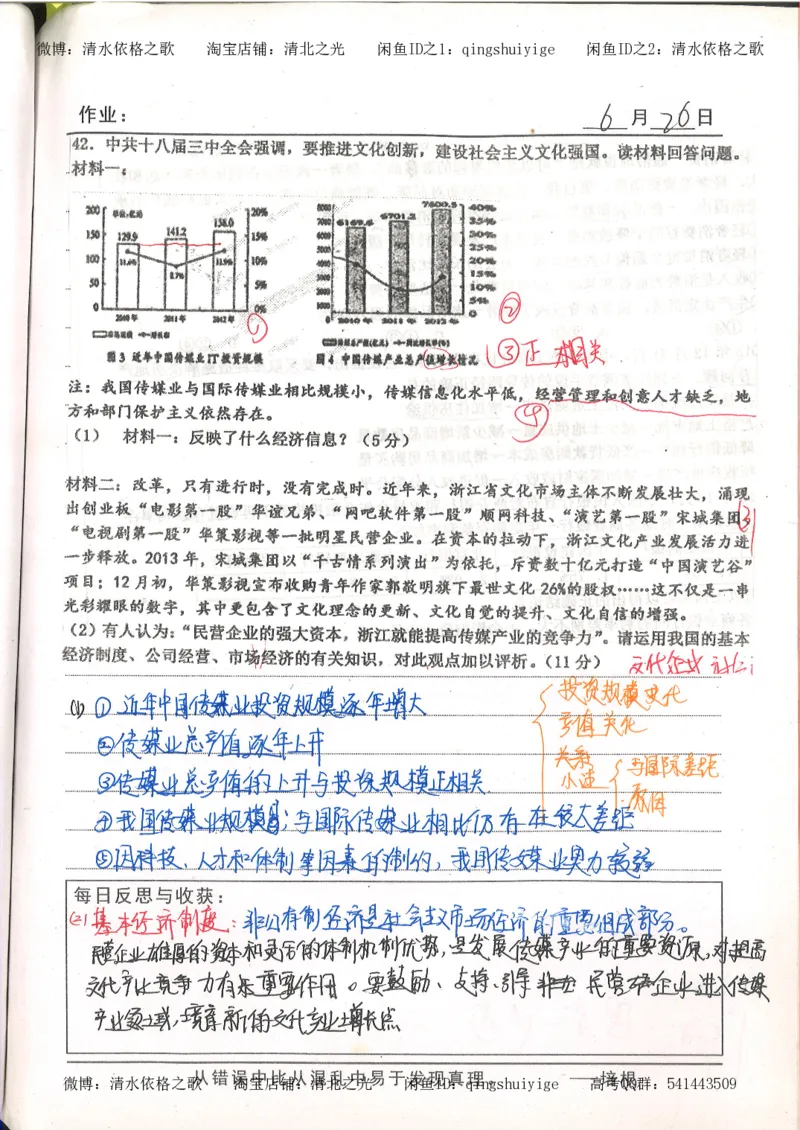 微博：清水依格之歌 淘宝店铺：清北之光 闲鱼ID之1：qingshuiyige 闲鱼ID之2：清水依格之歌
作业： 6 月 26 日
42．中共十八届三中全会强调，要推进文化创新，建设社会主义文化强国。读材料回答问题。
材料一
200 单位:亿元 20%
150 129.9 141.2 158.0 15%
100 11.6% 8.7% 11.9% 10%
50 5%
0 0%
2010年 2011年 2012年
①
图3 近年中国传媒业IT投资规模
8000 7600.5 40%
7000 6169.6 6701.2 35%
6000 30%
5000 25%
4000 20%
3000 15%
2000 10%
1000 5%
0 0
2010年 2011年 2012年
②
图4 中国传媒产业总产值增长情况
③正相关
注：我国传媒业与国际传媒业相比规模小，传媒信息化水平低，经营管理和创意人才缺乏，地
方和部门保护主义依然存在。
④
（1） 材料一：反映了什么经济信息？（5分）
材料二：改革，只有进行时，没有完成时。近年来，浙江省文化市场主体不断发展壮大，涌现
出创业板“电影第一股”华谊兄弟、“网吧软件第一股”顺网科技、“演艺第一股”宋城集团、
“电视剧第一股”华策影视等一批明星民营企业。在资本的拉动下，浙江文化产业发展活力进
一步释放。2013年，宋城集团以“千古情系列演出”为依托，斥资数十亿元打造“中国演艺谷”
项目；12月初，华策影视宣布收购青年作家郭敬明旗下最世文化26%的股权……这不仅是一串
光彩耀眼的数字，其中更包含了文化理念的更新、文化自觉的提升、文化自信的增强。
（2）有人认为：“民营企业的强大资本，浙江就能提高传媒产业的竞争力”。请运用我国的基本
经济制度、公司经营、市场经济的有关知识，对此观点加以评析。（11分）
文化企业
(1) ① 近年中国传媒业投资规模逐年增大
投资规模变化
②传媒业总产值逐年上升
产值变化
③传媒业总产值的上升与投资规模正相关
关系
与国际差距
④我国传媒业规模小；与国际传媒业相比仍有存在较大差距
原因
⑤因科技、人才和体制等因素的制约，我国传媒业实力较弱
每日反思与收获：
(2)基本经济制度：非公有制经济是社会主义市场经济的重要组成部分。
民营企业雄厚的资本和灵活的体制机制优势，是发展传媒产业的重要资源，对提高
文化产业竞争力有着重要作用。要鼓励、支持、引导非公民营企业进入传媒
产业领域，培育新的文化产业增长点
从错误中比从混乱中易于发现真理 ——培根
微博：清水依格之歌 淘宝店铺：清北之光 闲鱼ID：qingshuiyige 高考QQ群：541443509